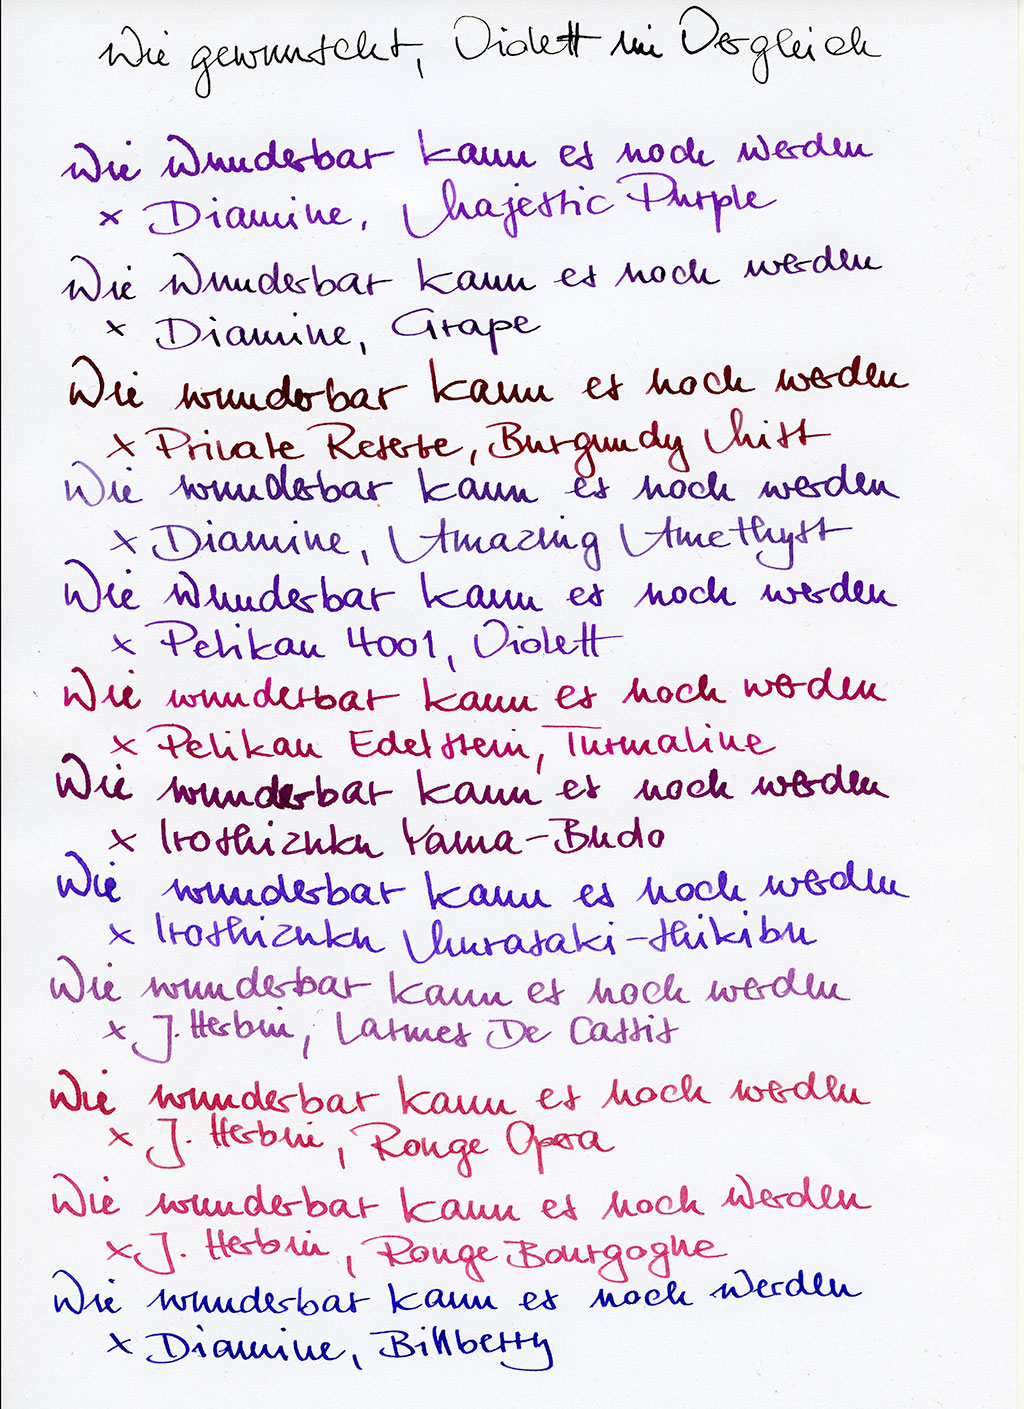 Wie gewünscht, Violett im Vergleich
Wie Wunderbar kann es noch werden
x Diamine, Majestic Purple
Wie Wunderbar kann es noch werden
x Diamine, Grape
Wie wunderbar kann es noch werden
x Private Reserve, Burgundy Mist
Wie wunderbar kann es noch werden
x Diamine, Amazing Amethyst
Wie Wunderbar kann es noch werden
x Pelikan 4001, Violett
Wie wunderbar kann es noch werden
x Pelikan Edelstein, Turmaline
Wie wunderbar kann es noch werden
x Iroshizuku Yama-Budo
Wie wunderbar kann es noch werden
x Iroshizuku Murasaki-shikibu
Wie wunderbar kann es noch werden
x J. Herbin, Larmes De Cassis
Wie wunderbar kann es noch werden
x J. Herbin, Rouge Opera
Wie wunderbar kann es noch Werden
x J. Herbin, Rouge Bourgogne
Wie wunderbar kann es noch Werden
x Diamine, Billberry